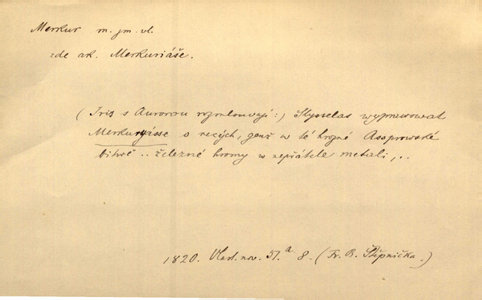 Merkur m. jm. vl.
zde ak. Merkuriáše.
( Iris s Aurorou rozmlouvají:) Slyšelas vypravovat
Merkuryásse o rekých, genž w té hrozné Assprowské
bitvě .. železné hromy w nepřátele metali, ..
1820. Vlast. nov. 51.a 8. ( Fr. B. Štěpnička.)